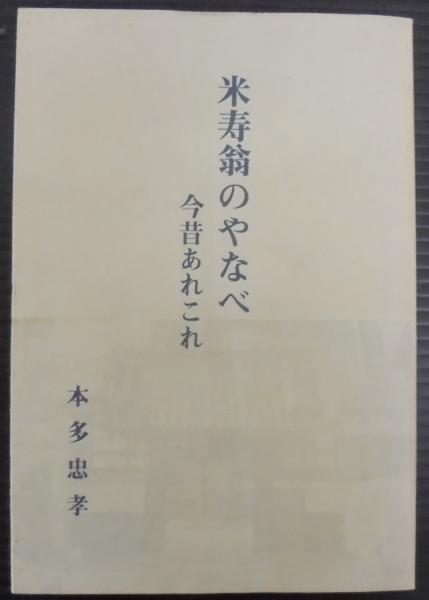 米寿翁のやなべ
今昔あれこれ
本多忠孝